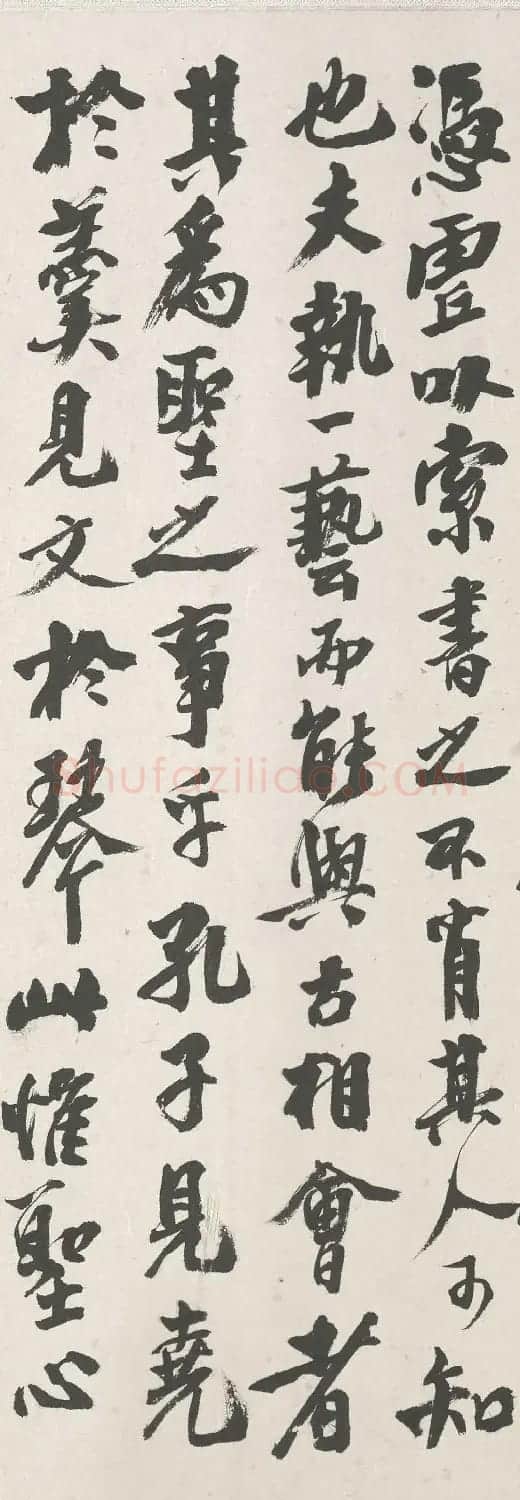 憑虛以索書之不肯其人可知
也夫執一藝而能與古相會者
其為聖之事乎孔子見堯
於羹見文於琴此惟聖心
Shufaziliao.COM